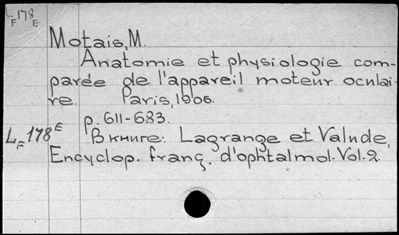 L_F 178 E
Motais, M.
Anatomie et physiologie com-
parée de l'appareil moteur oculai-
re. Paris, 1906.
p. 611-683.
L_F 178 E В книге: Lagrange et Valude,
Encyclop. franç. d'ophtalmol. Vol. 2